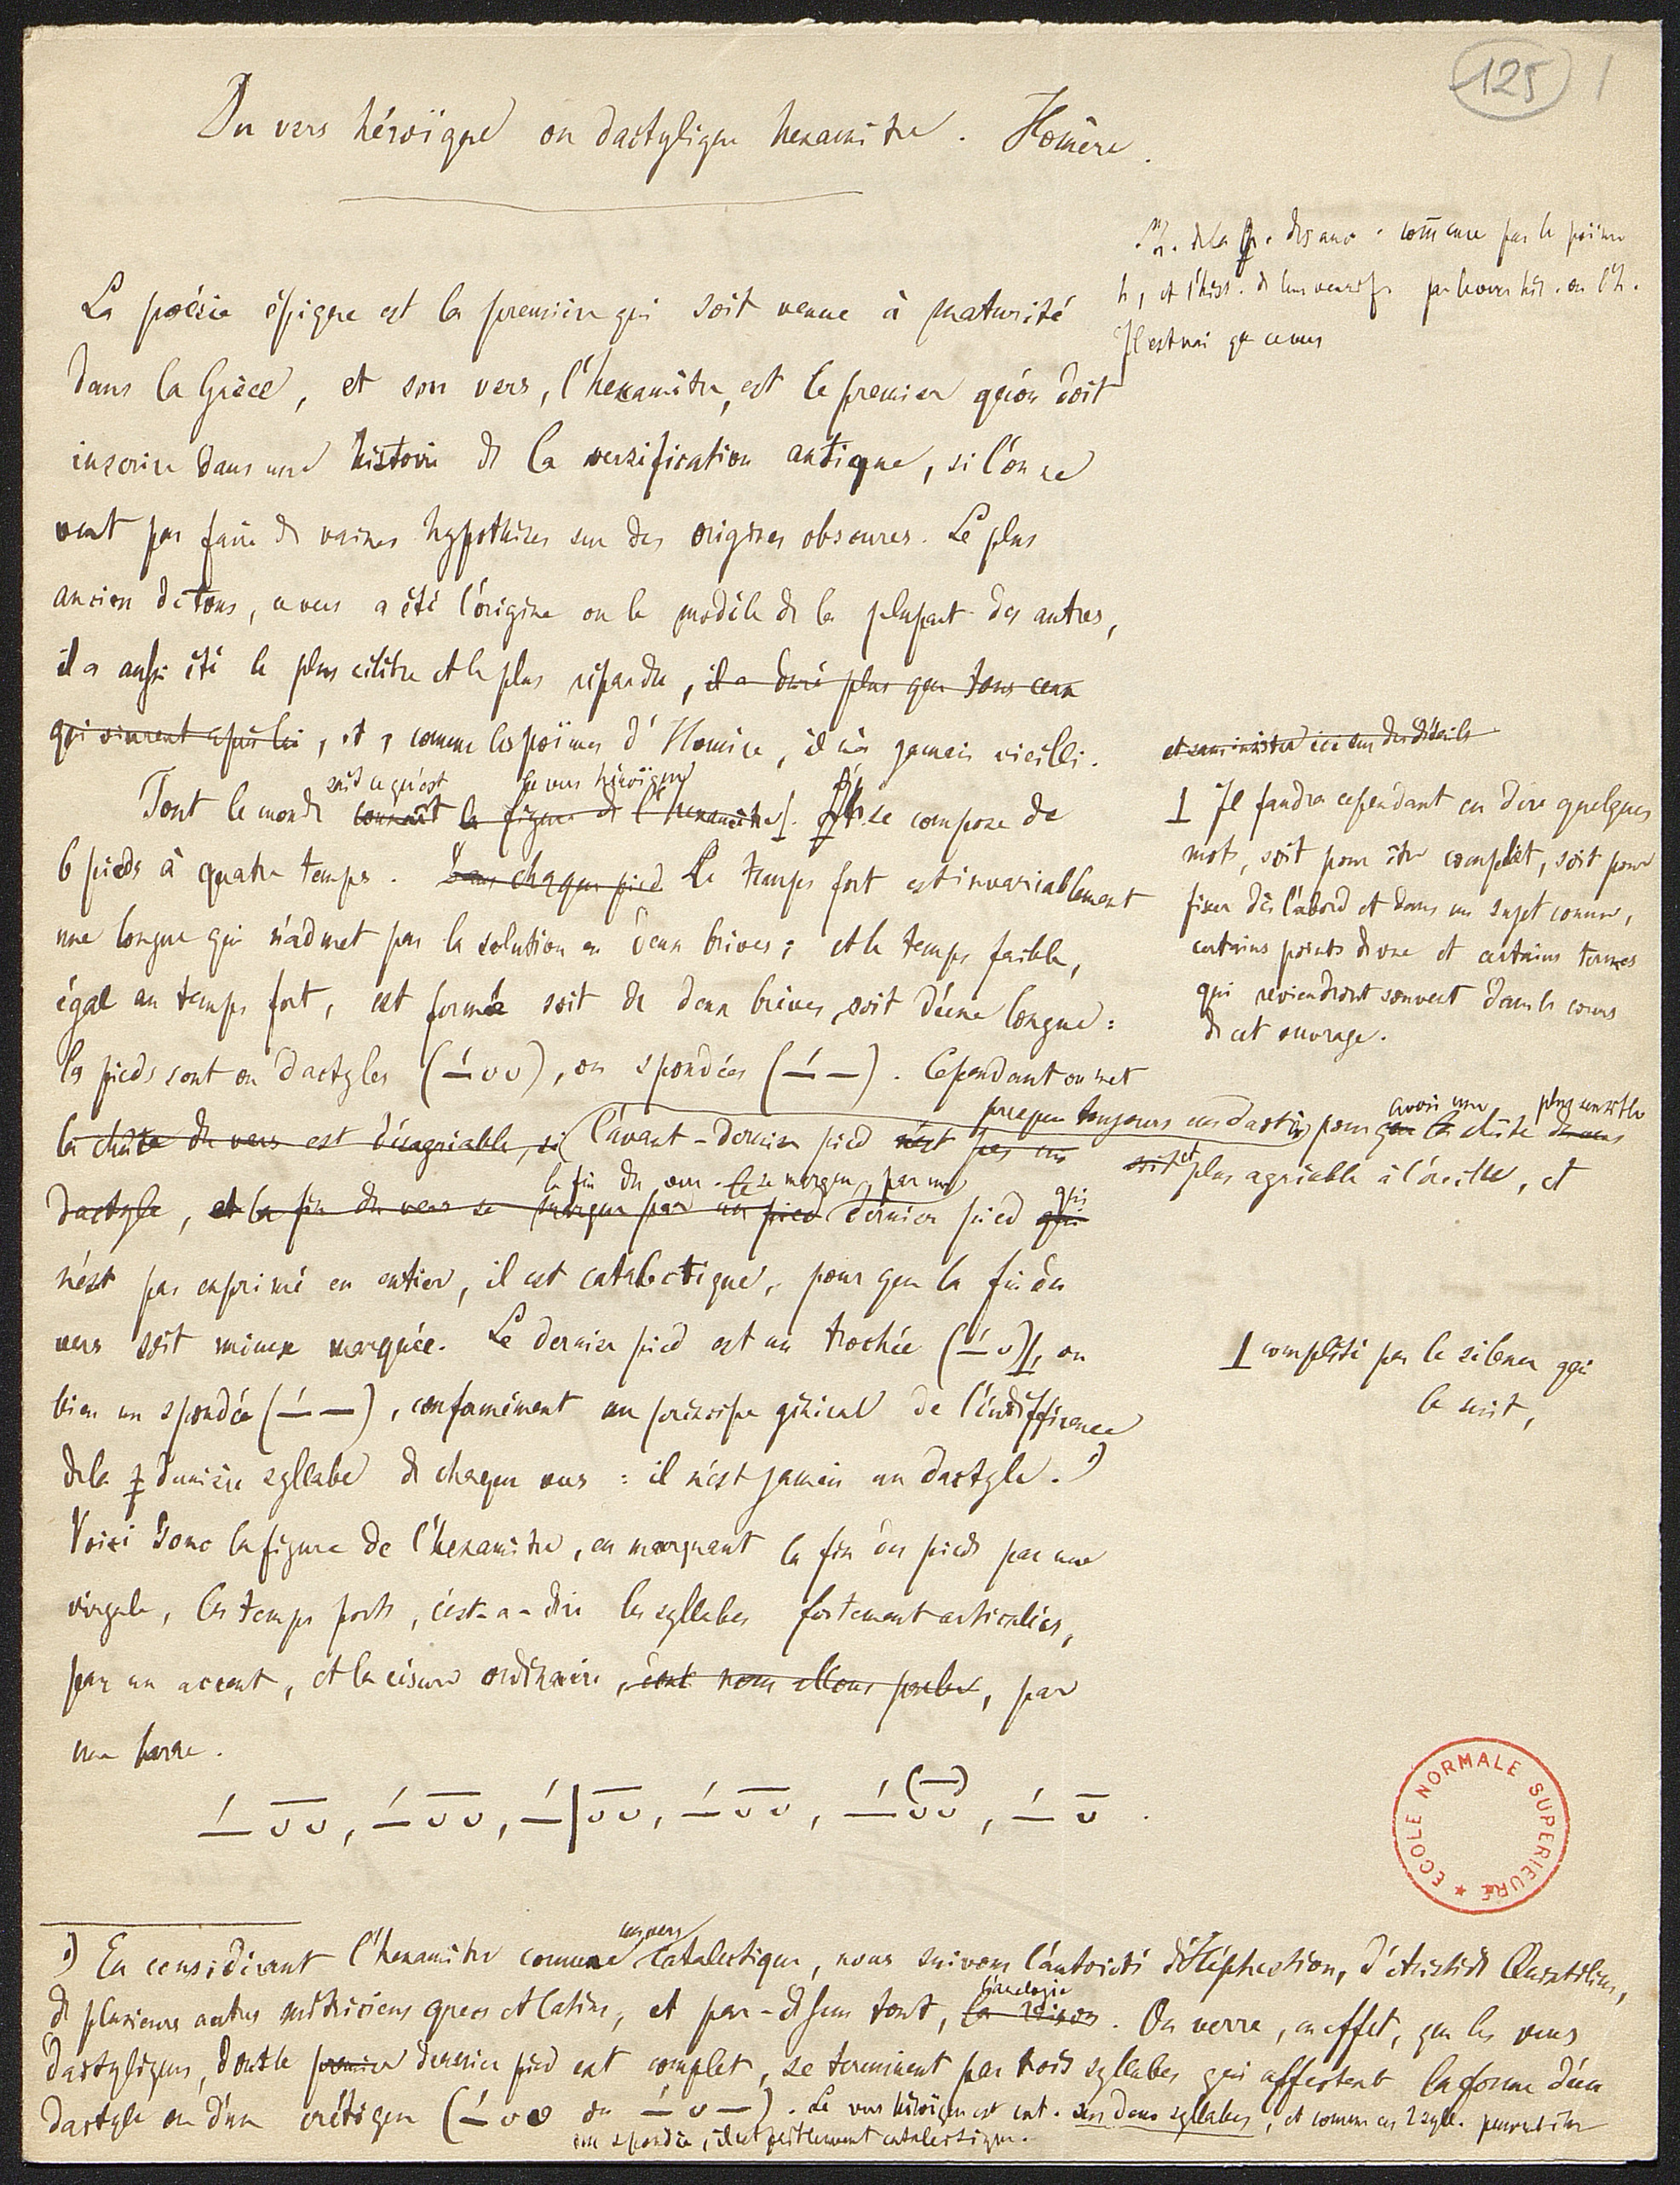 125 1
Du vers héroïque ou dactylique hexamètre. Homère.
comence par le poème
h, et l'hist. de leur versif. par le vers hér. ou l'h.
Il est vrai que ce vers
La poésie épique est la première qui soit venue à maturité
dans la Grèce, et son vers, l'hexamètre, est le premier qu'on doit
inscrire dans une histoire de la versification antique, si l'on ne
veut pas faire de vaines hypothèses sur des origines obscures. Le plus
ancien de tous, ce vers a été l'origine ou le modèle de la plupart des autres,
il a aussi été le plus célèbre et le plus répandu, il a duré plus que tous ceux
qui vinrent après lui, et, comme les poèmes d'Homère, il n'a jamais vieilli.
et sans insister ici sur des détails
sait ce qu'est le vers héroïque
Tout le monde connaît la figure de l'hexamètre. Il se compose de
6 pieds à quatre temps. Dans chaque pied Le temps fort est invariablement
une longue qui n'admet pas la solution en deux brèves; et le temps faible,
égal au temps fort, est formé soit de deux brèves, soit d'une longue:
les pieds sont ou dactyles (–́ ᴗᴗ), ou spondées (–́ –). Cependant on met
⊥ Il faudra cependant en dire quelques
mots, soit pour être complet, soit pour
fixer dès l'abord et dans un sujet connu,
certains points de vue et certains termes
qui reviendront souvent dans le cours
de cet ouvrage.
presque toujours un dactyle pour avoir une plus sensible
la chûte du vers est désagréable, si l'avant-dernier pied n'est pas un que la chûte du vers
soit et plus agréable à l'oreille, et
la fin du vers se marque par un
dactyle, et la fin du vers se marque par un pied dernier pied qui
n'est pas exprimé en entier, il est catalectique, pour que la fin du
vers soit mieux marquée. Le dernier pied est un trochée (–́ ᴗ)⊥, ou
⊥ complété par le silence qui
le suit,
bien un spondée (–́ –), conformément au principe général de l'indifférence
de la dernière syllabe de chaque vers: il n'est jamais un dactyle. ¹)
Voici donc la figure de l'hexamètre, en marquant la fin des pieds par une
virgule, les temps forts, c'est-a-dire les syllabes fortement articulées,
par un accent, et la césure ordinaire, dont nous allons parler, par
une barre.
–́ ᴗ̅ᴗ̅, –́ ᴗ̅ᴗ̅, –́|ᴗ̅ᴗ̅, –́ ᴗ̅ᴗ̅, –́ (ᴗ̅ᴗ̅), –́ ᴗ̅.
ECOLE NORMALE SUPERIEURE
¹) En considérant l'hexamètre comme un vers catalectique, nous suivons l'autorité d'Héphestion, d'Aristide Quintilien,
de plusieurs autres métriciens grecs et latins, et par-dessus tout, la raison l'analogie. On verra, en effet, que les vers
dactyliques, dont le premier dernier pied est complet, se terminent par trois syllabes qui affectent la forme d'un
dactyle ou d'un crétique (–́ ᴗᴗ ou –́ ᴗ –). Le vers héroïque est cat. in deux syllabes, et comme ces 2 syll. peuvent être
un spondée, il est faiblement catalectique.